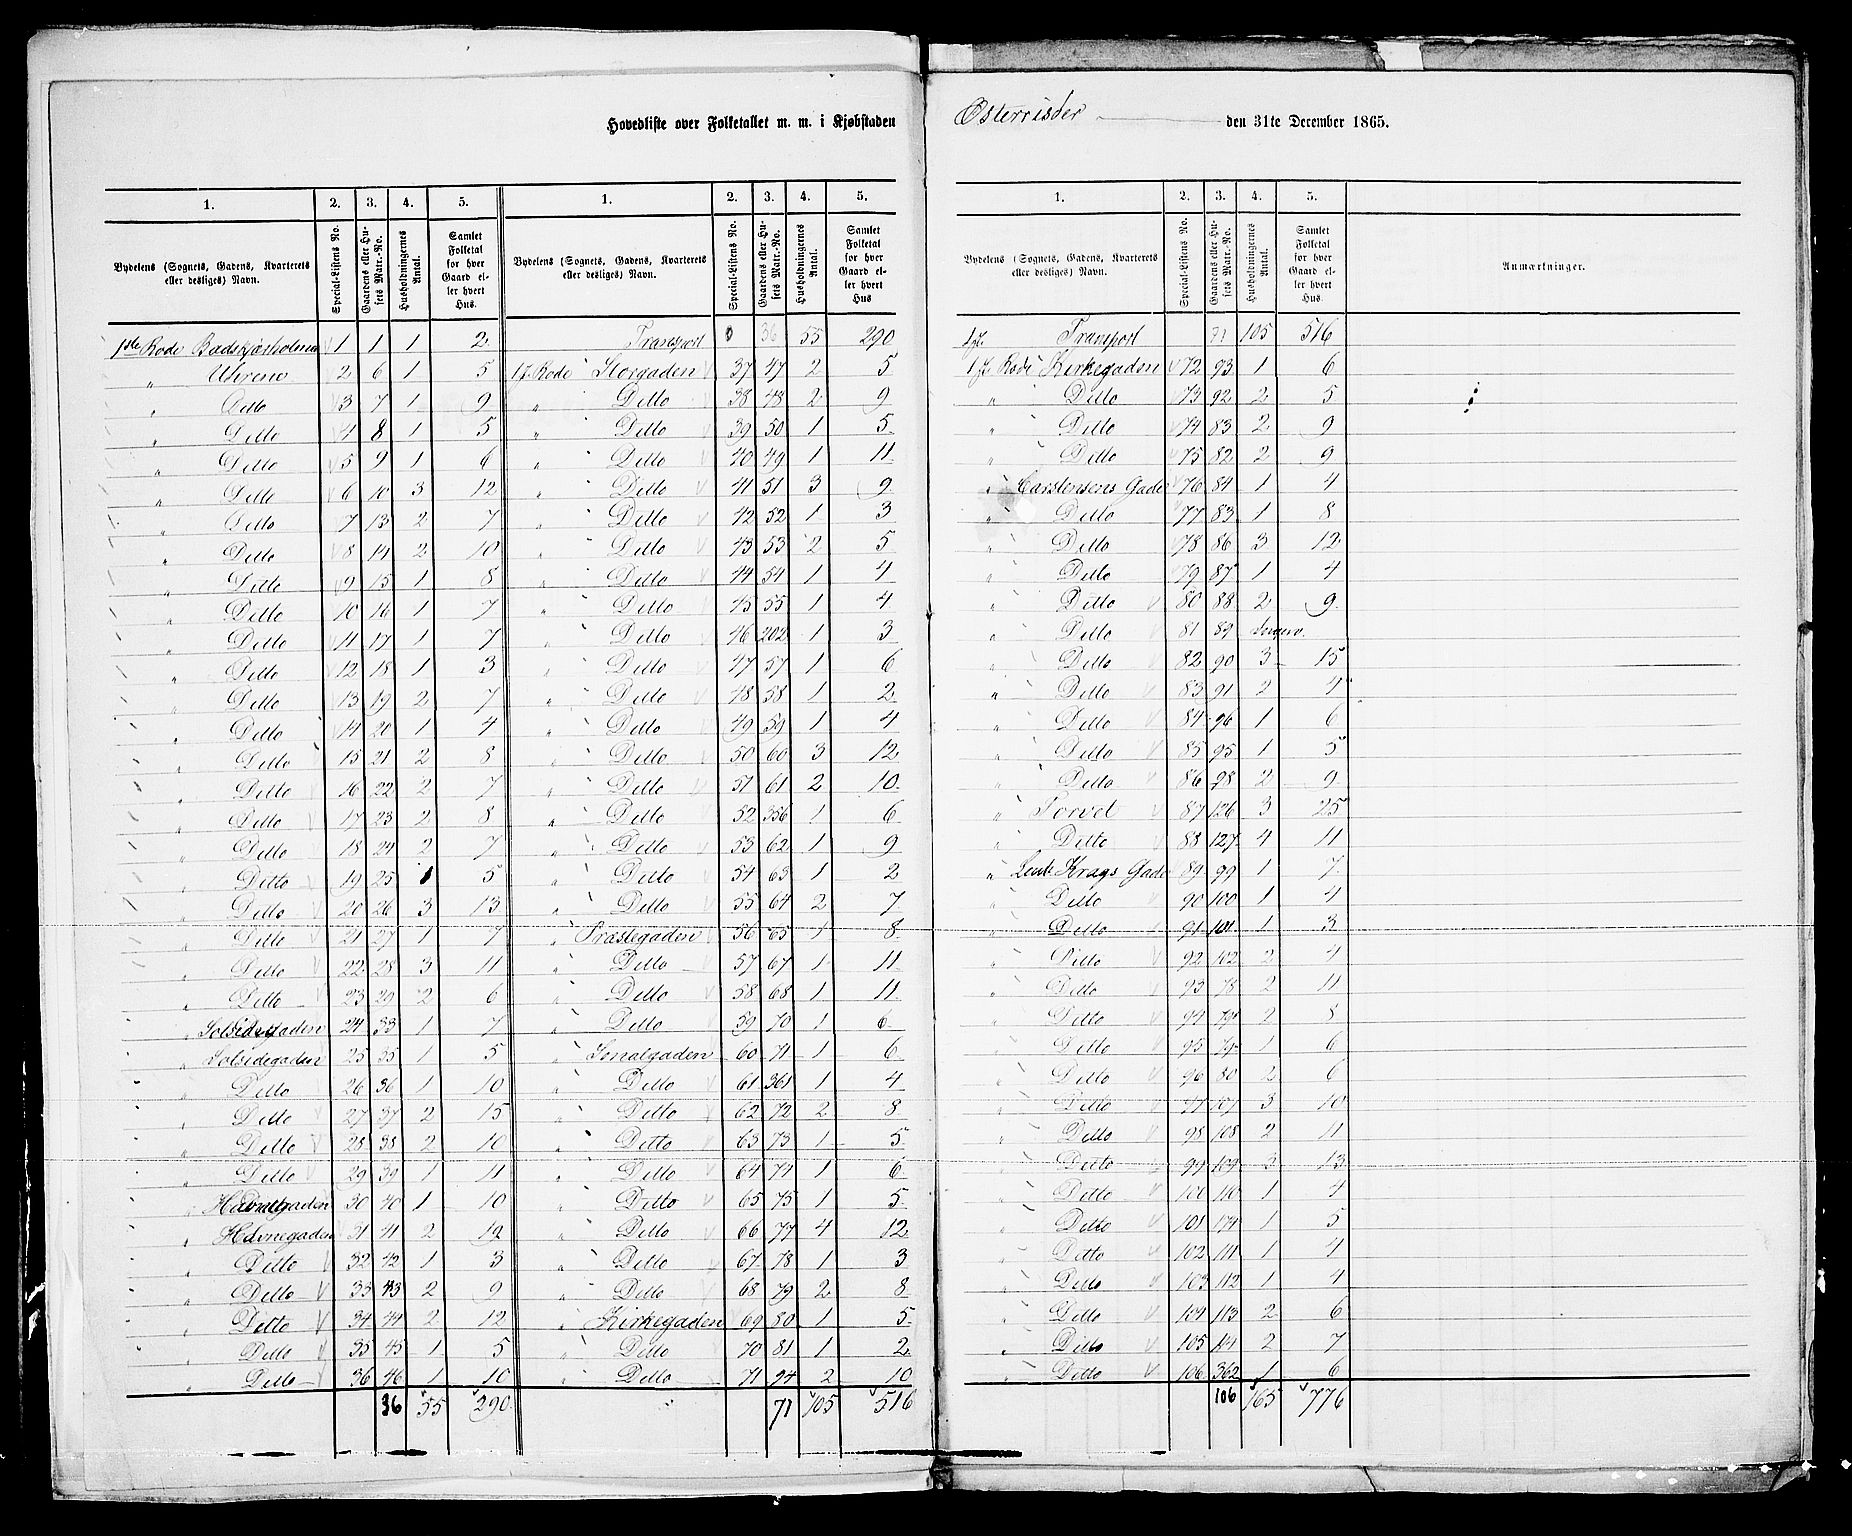 Hovedliste over Folketallet m. m. i Kjøbstaden Østerrisöer den 31te December 1865.
1. 2. 3. 4. 5.
Bydelens (Sognets, Gadens, Kvarterets eller desliges) Navn. Special-Listens No. Gaardens eller Husets Matr.-No. Husholdningernes Antal. Samlet Folketal for hver Gaard eller hvert Hus.
1ste Rode 1 1 1 2
" 2 6 1 5
" Ditto 3 7 1 9
" Ditto 4 8 1 5
" Ditto 5 9 1 6
" Ditto 6 10 3 12
" Ditto 7 13 2 7
" Ditto 8 14 2 10
" Ditto 9 15 1 8
" Ditto 10 16 1 7
" Ditto 11 17 1 7
" Ditto 12 18 1 3
" Ditto 13 19 2 7
" Ditto 14 20 1 4
" Ditto 15 21 2 8
" Ditto 16 22 2 7
" Ditto 17 23 2 8
" Ditto 18 24 2 7
" Ditto 19 25 1 5
" Ditto 20 26 3 13
" Ditto 21 27 1 7
" Ditto 22 28 3 11
" Ditto 23 29 2 6
" Solsidegaden 24 33 1 7
" Solsidegaden 25 35 1 5
" Ditto 26 36 1 10
" Ditto 27 37 2 15
" Ditto 28 38 2 10
" Ditto 29 39 1 11
" Havnegaden 30 40 1 10
" Havnegaden 31 41 2 12
" Ditto 32 42 1 3
" Ditto 33 43 2 9
" Ditto 34 44 2 12
" Ditto 35 45 1 5
" Ditto 36 46 1 10
36 55 290
1. 2. 3. 4. 5.
Bydelens (Sognets, Gadens, Kvarterets eller desliges) Navn. Special-Listens No. Gaardens eller Husets Matr.-No. Husholdningernes Antal. Samlet Folketal for hver Gaard eller hvert Hus
Transport 36 55 290
Rode Storgaden 37 47 2 5
" Ditto 38 48 2 9
" Ditto 39 50 1 5
" Ditto 40 49 1 11
" Ditto 41 51 3 9
" Ditto 42 52 1 3
" Ditto 43 53 2 5
" Ditto 44 54 1 4
" Ditto 45 55 1 4
" Ditto 46 202 1 3
" Ditto 47 57 1 6
" Ditto 48 58 1 2
" Ditto 49 59 1 4
" Ditto 50 60 3 12
" Ditto 51 61 2 10
" Ditto 52 356 1 6
" Ditto 53 62 1 9
" Ditto 54 63 1 2
" Ditto 55 64 2 7
" Præstegaden 56 65 1 8
" Ditto 57 67 1 11
" Ditto 58 68 1 11
" Ditto 59 70 1 6
" Smalgaden 60 71 1 6
" Ditto 61 361 1 4
" Ditto 62 72 2 8
" Ditto 63 73 1 5
" Ditto 64 74 1 6
" Ditto 65 75 1 5
" Ditto 66 77 4 12
" Ditto 67 78 1 3
" Ditto 68 79 2 8
" Kirkegaden 69 80 1 5
" Ditto 70 81 1 2
" Ditto 71 94 2 10
71 105 516
1. 2. 3. 4. 5.
Bydelens (Sognets, Gadens, Kvarterets eller desliges) Navn. Special-Listens No. Gaardens eller Husets Matr.-No. Husholdningernes Antal. Samlet Folketal for hver Gaard eller hvert Hus. Anmærkninger.
Transport 71 105 516
Rode Kirkegaden 72 93 1 6
" Ditto 73 92 2 5
" Ditto 74 83 2 9
" Ditto 75 82 2 9
" Carstensens Gade 76 84 1 4
" Ditto 77 83 1 8
" Ditto 78 86 3 12
" Ditto 79 87 1 4
" Ditto 80 88 2 9
" Ditto 81 89
" Ditto 82 90 3 15
" Ditto 83 91 2 4
" Ditto 84 96 1 6
" Ditto 85 95 1 5
" Ditto 86 98 2 9
" Torvet 87 126 3 25
" Ditto 88 127 4 11
" Krags Gade 89 99 1 7
" Ditto 90 100 1 4
" Ditto 91 101 1 3
" Ditto 92 102 2 4
" Ditto 93 78 2 11
" Ditto 94 2 8
" Ditto 95 79 1 6
" Ditto 96 80 2 6
" Ditto 97 107 3 10
" Ditto 98 108 2 11
" Ditto 99 109 3 13
" Ditto 100 110 1 4
" Ditto 101 174 1 5
" Ditto 102 111 1 4
" Ditto 103 112 1 4
" Ditto 104 113 2 6
" Ditto 105 114 2 7
" Ditto 106 362 1 6
106 165 776